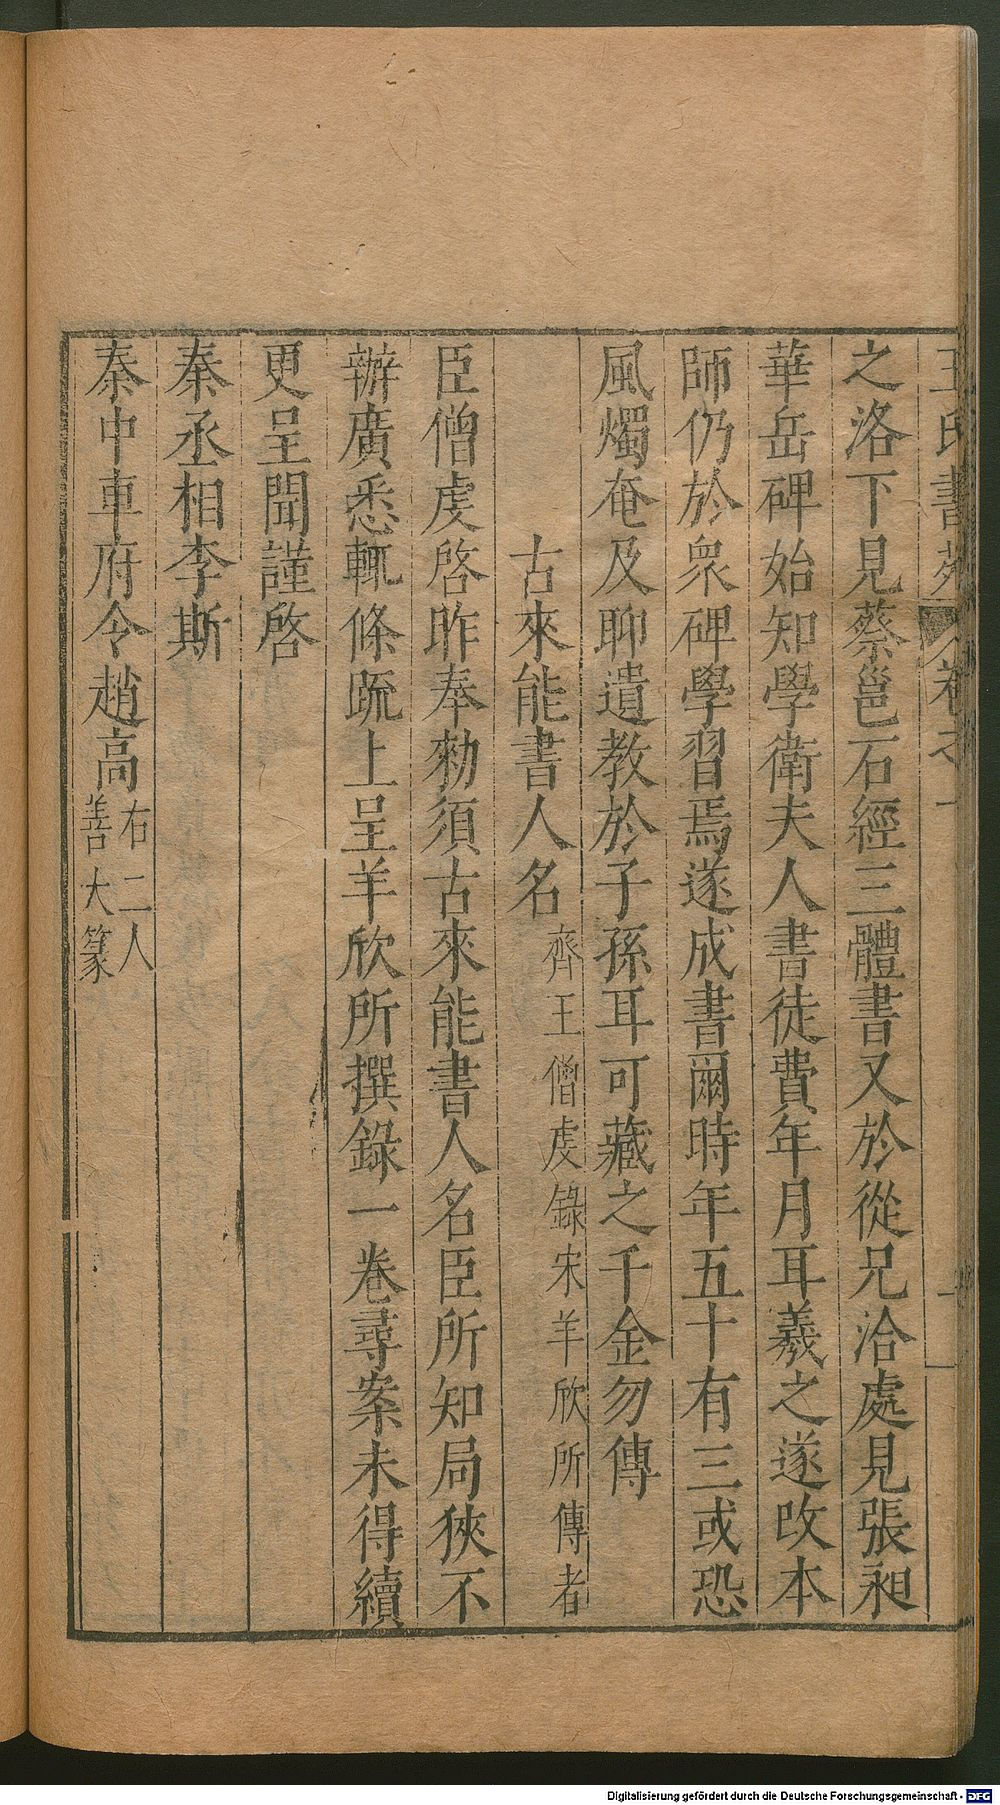 王氏書苑 卷之一
之洛下見蔡邕石經三體書又於從兄洽處見張昶
華岳碑始知學衛夫人書徒費年月耳羲之遂改本
師仍於衆碑學習焉遂成書爾時年五十有三或恐
風燭奄及聊遺教於子孫耳可藏之千金勿傳
古來能書人名 齊王僧虔錄宋羊欣所傳者
臣僧虔啓昨奉勑須古來能書人名臣所知局狹不
辦廣悉輒條疏上呈羊欣所撰錄一卷尋案未得續
更呈聞謹啓
秦丞相李斯
秦中車府令趙高 右二人
善大篆
Digitalisierung gefördert durch die Deutsche Forschungsgemeinschaft - DFG